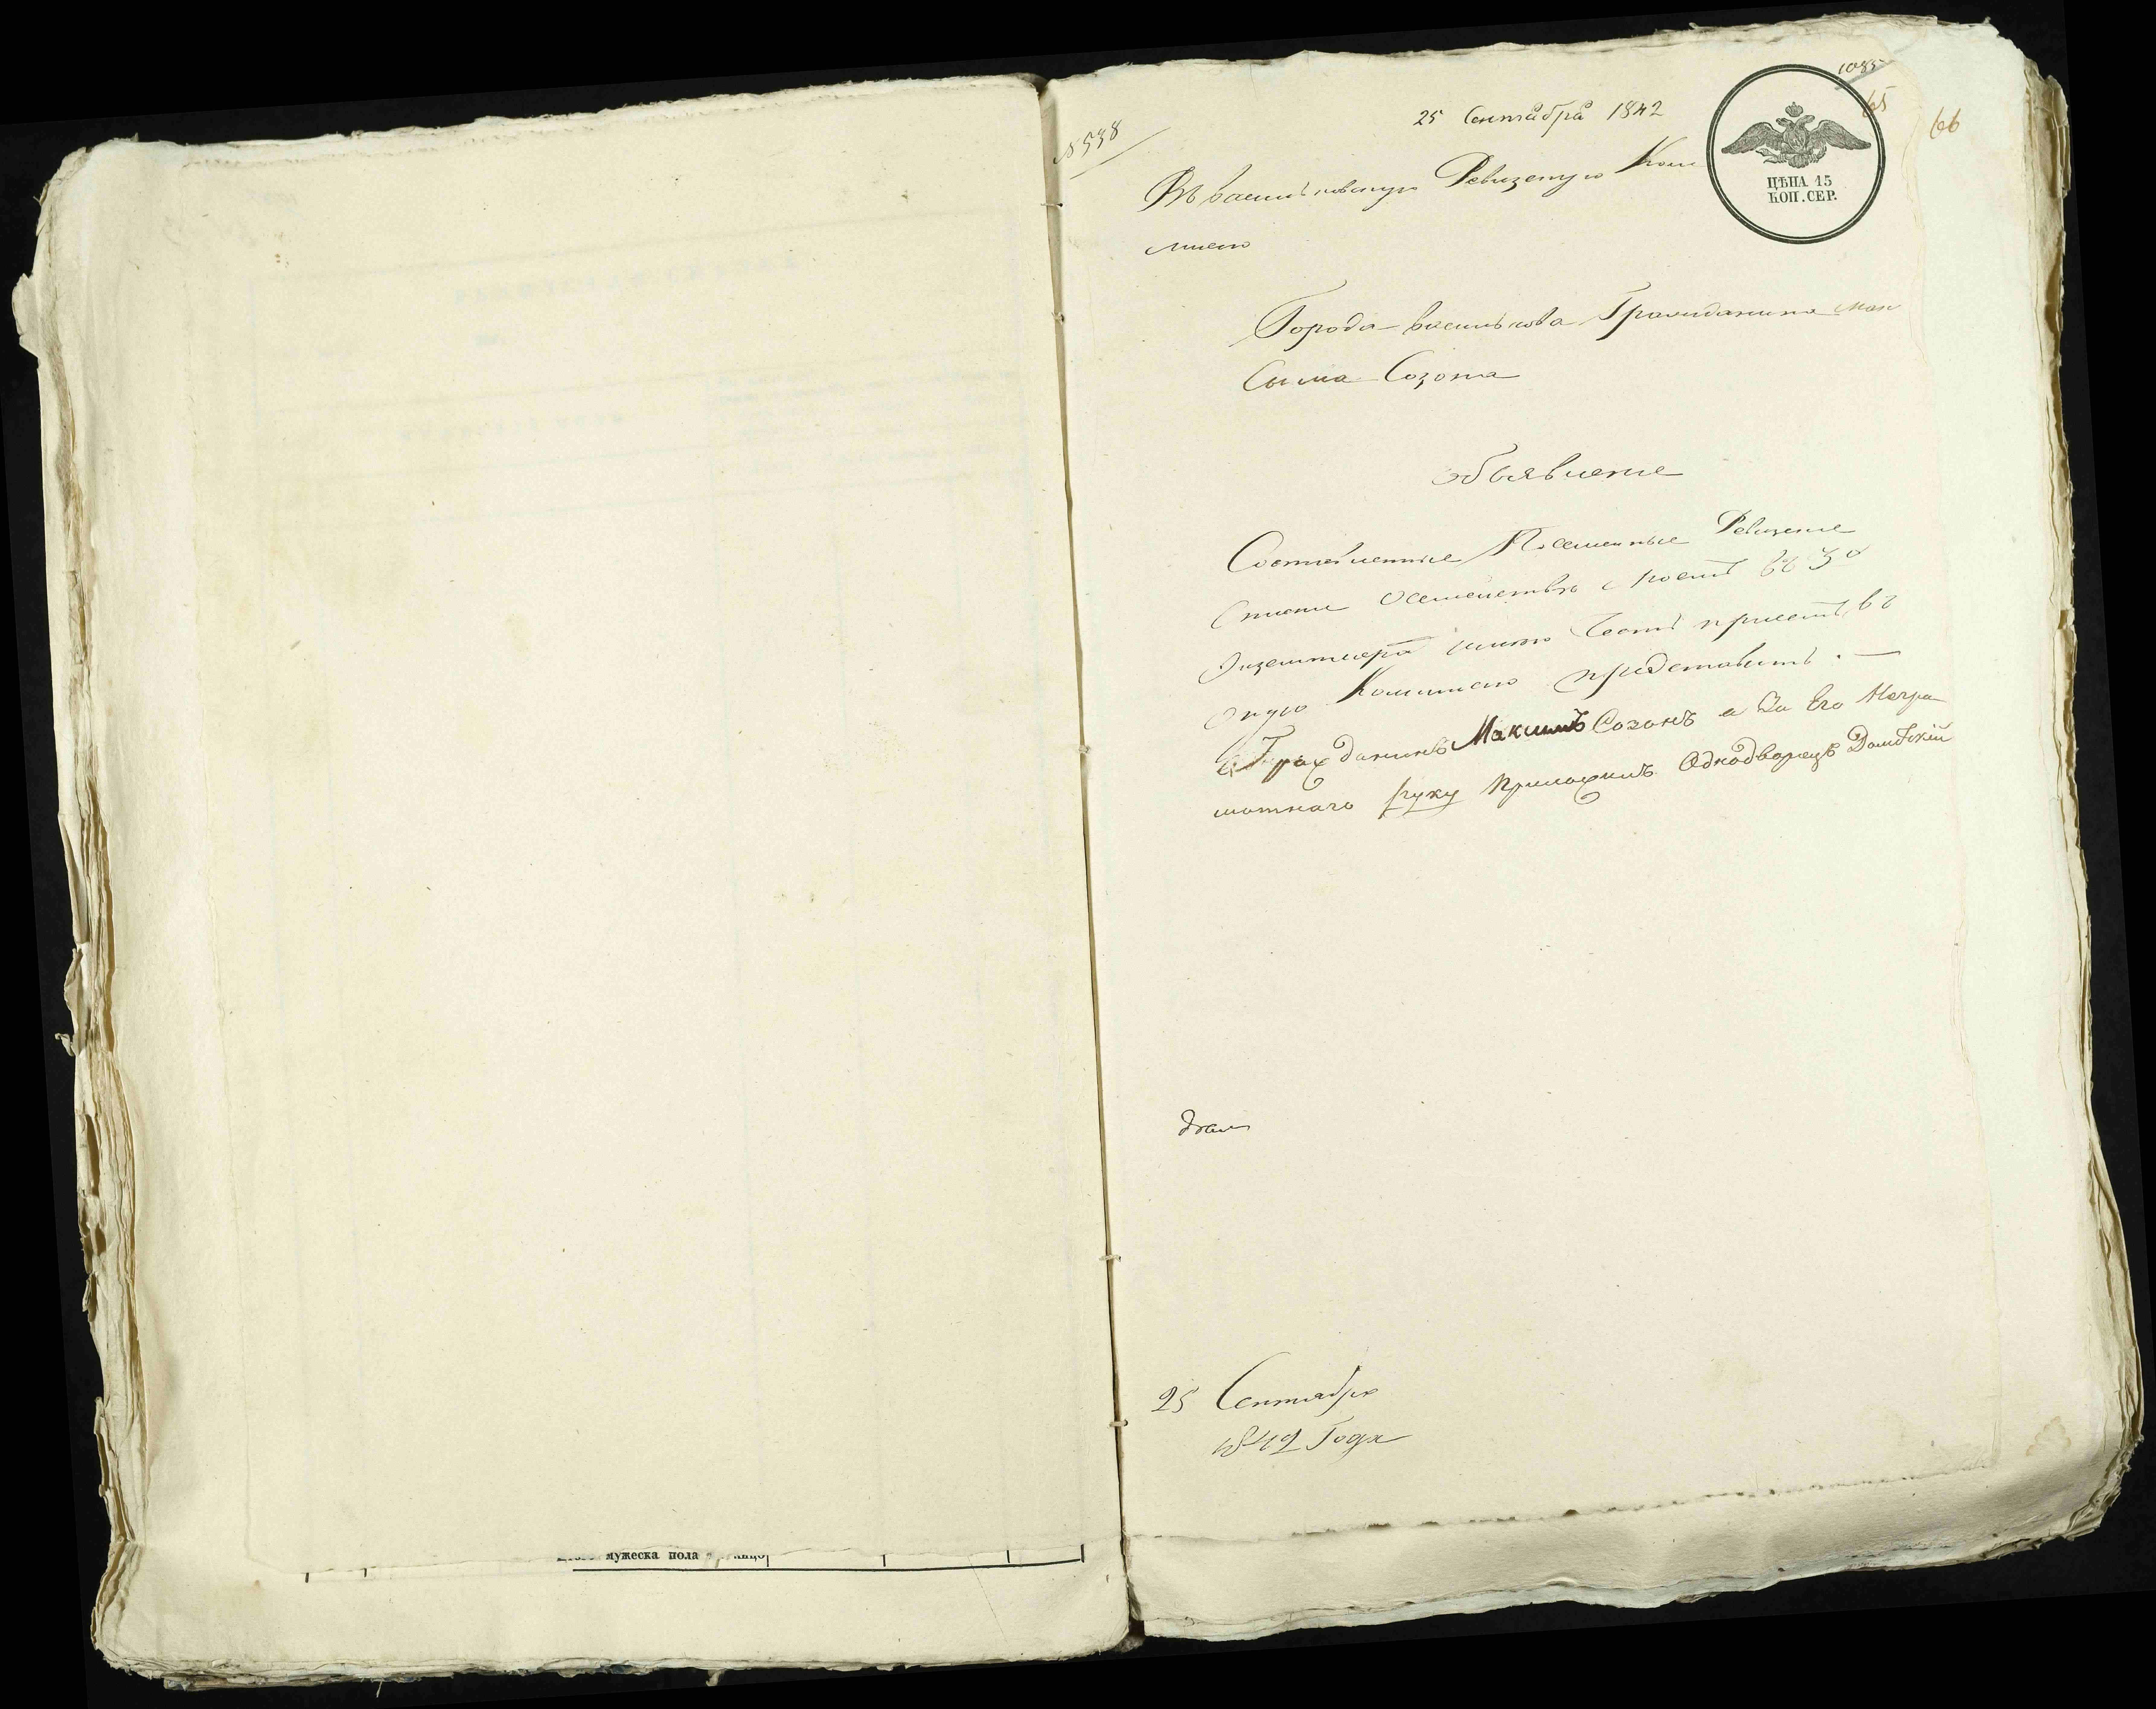 мужеска пола
№ 538
25 Сентября 1842
1085
65
66
ЦѢНА 15
КОП. СЕР.
Въ васильковскую Ревизскую Ком
мисию
Города василькова Гражданина Мак
Сыма Созона
объявление
Составленные Посемейные Ревизские
Списки Осемействе моемъ въ 3х
Экземплярахъ имею Честь присемъ въ
Оную Коммисию представить . —
Гражданинъ Максимъ Созонъ а За Его Негра
мотнаго руку Приложилъ Однодворецъ Домбскiй
25 Сентября
1842 Года